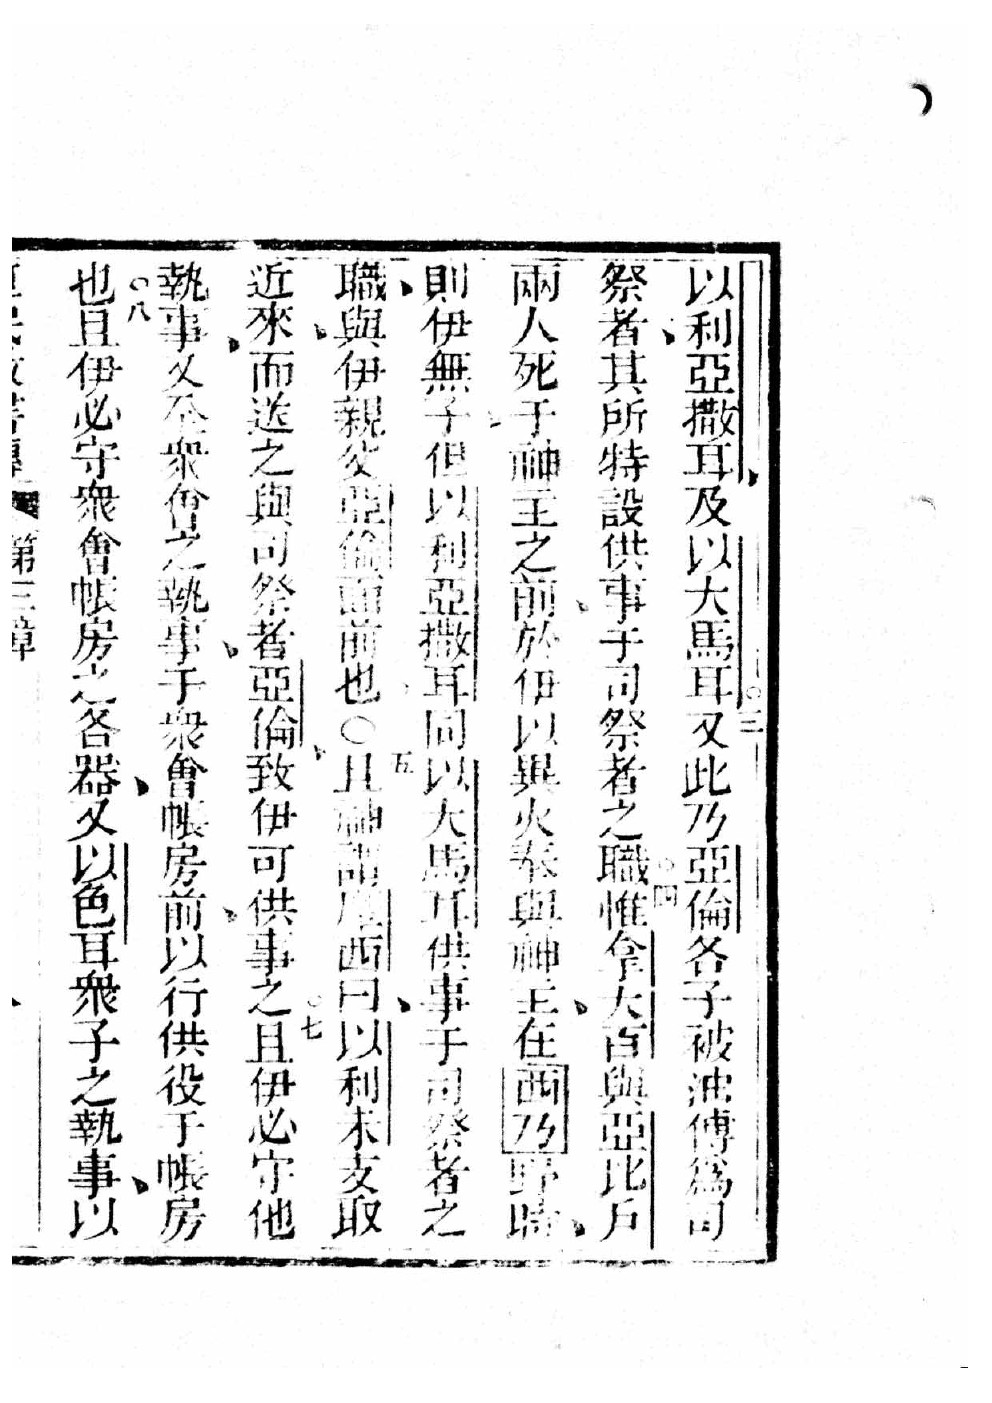 以利亞撒耳及以大馬耳○三又此乃亞倫各子被油傅爲司
祭者其所特設供事于司祭者之職○四惟拿大百與亞比戶
兩人死于神主之前於伊以異火奉與神主在西乃野時
則伊無子但以利亞撒耳同以大馬耳供事于司祭者之
職與伊親父亞倫面前也○五且神謂摩西曰以利未支取
近來而送之與司祭者亞倫致伊可供事之○七且伊必守他
執事又全衆會之執事于衆會帳房前以行供役于帳房
○八也且伊必守衆會帳房之各器又以色耳衆子之執事以
第三章